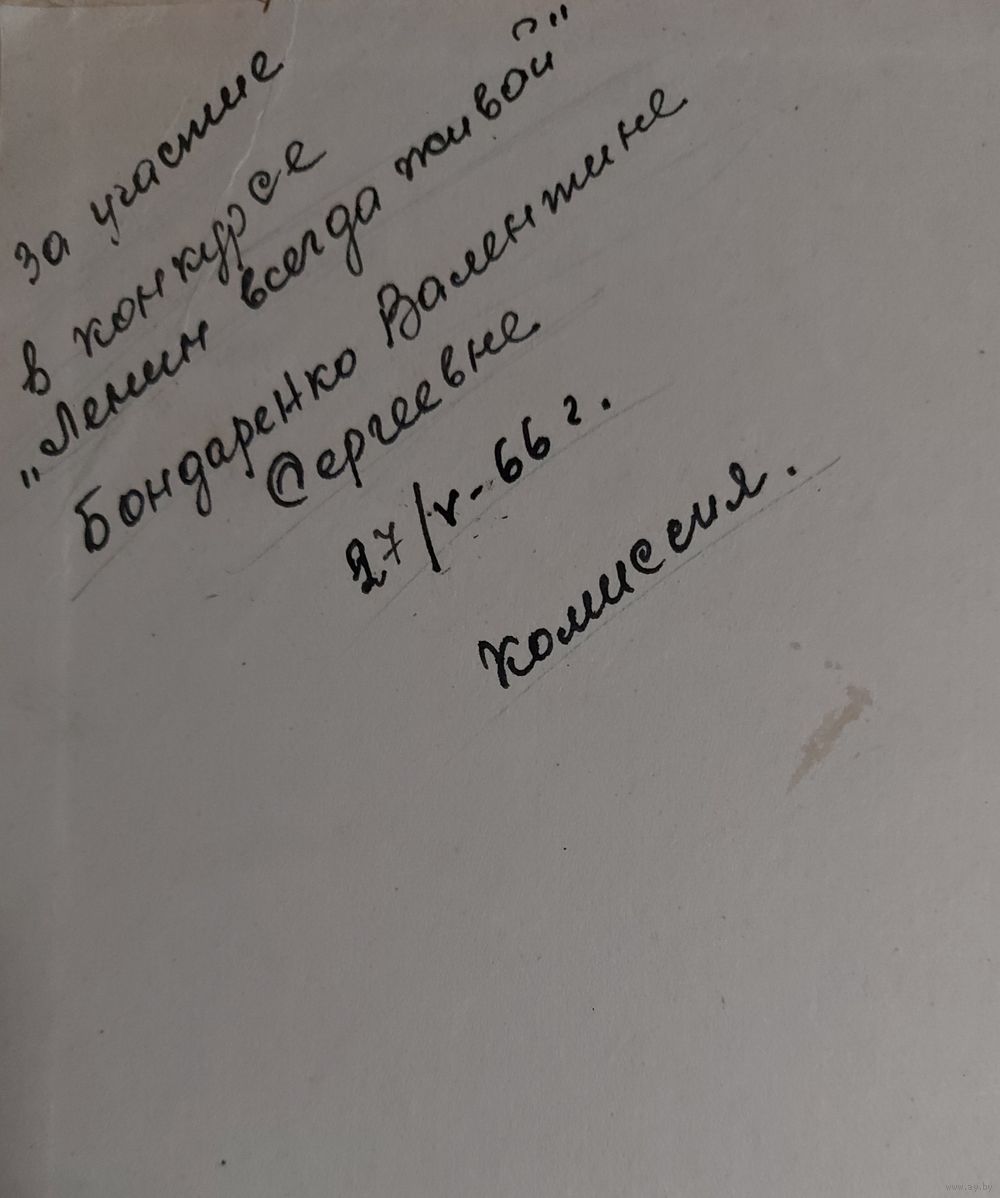 За участие
в конкурсе
"Ленин всегда живой"
Бондаренко Валентине
Сергеевне
27/V-66 г.
Комиссия.
www.ay.by